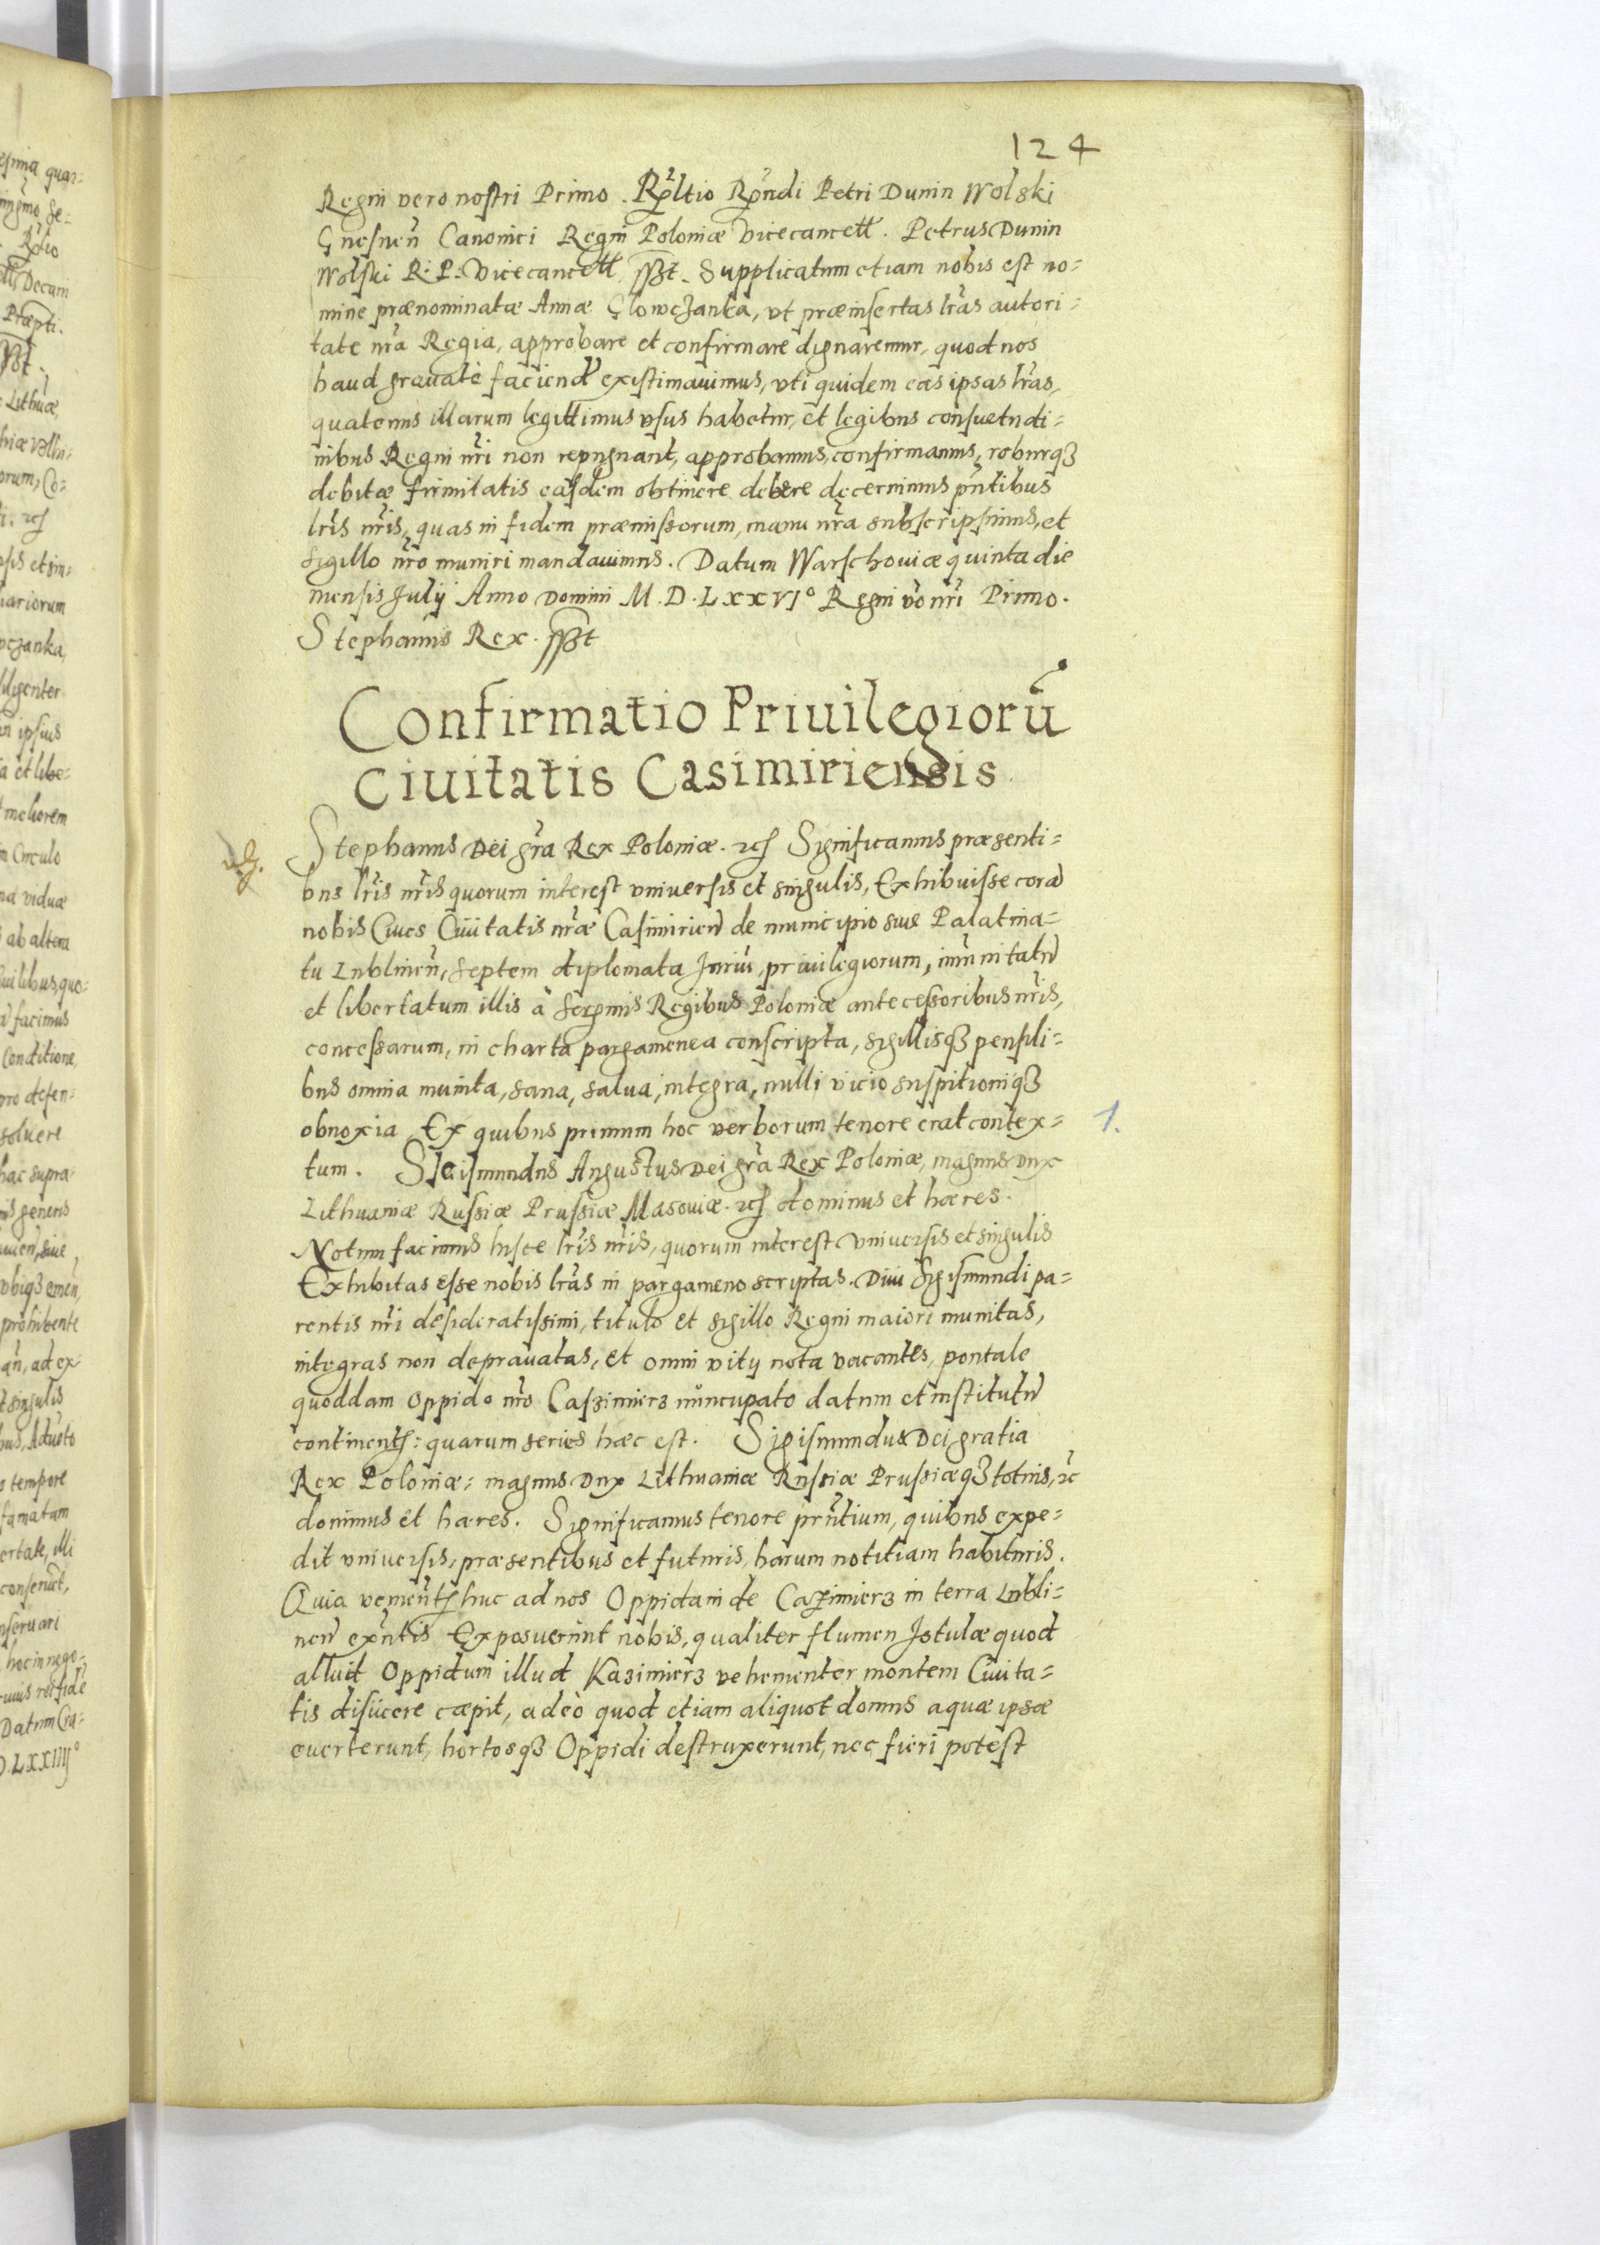 124
Regni vero nostri Primo. Rp̃ltio Rp̃ndi Petri Dunin Wolski
Gnesnen̄ Canonici Regni Poloniæ vicecancell. Petrus Dunin
Wolski R. P. Vicecancell sszt. Supplicatum etiam nobis est no=
mine prænominatæ Annæ Głowczanka, vt præinsertas lr̃as autori=
tate nr̃a Regia, approbare et confirmare dignaremur, quod nos
haud grauatè faciend existimauimus, vti quidem eas ipsas lr̃as,
quatenus illarum legittimus vsus habetur, et legibus consuetudi=
nibus Regni nr̃i non repugnant, approbamus, confirmamus, roburqȝ
debitæ firmitatis easdem obtinere debere decernimus pn̄tibus
lr̃is nr̃is, quas in fidem præmissorum, manu nr̃a subscripsimus, et
sigillo nr̃o muniri mandauimus. Datum Warschouiæ quinta die
mensis Julij Anno Domini M.D.LXXVI° Regni vo nr̃i Primo.
Stephanus Rex. sszt
Confirmatio Priuilegiorū
Ciuitatis Casimiriensis
Stephanus Dei gr̃a Rex Poloniæ. zc̄ Significamus præsenti=
bus lr̃is nr̃is quorum interest vniuersis et singulis, Exhibuisse corā
nobis Ciues Ciuitatis nr̃æ Casimirien̄ de municipio siue Palatina=
tu Lublinen̄, septem diplomata Juriū, priuilegiorum, imūnitatū
et libertatum illis à Serenmis Regibus Poloniæ antecessoribus nr̃is,
concessarum, in charta pargamenea conscripta, sigillisqȝ pensili=
bus omnia munita, sana, salua, integra, nulli vicio suspitioniqȝ
obnoxia Ex quibus primum hoc verborum tenore erat contex= 1.
tum. Sigismundus Augustus Dei gr̃a Rex Poloniæ, magnus Dux
Lithuaniæ Russiæ Prussiæ Masouiæ. zc̄ dominus et hæres.
Notum facimus hisce lr̃is nr̃is, quorum interest vniuersis et singulis
Exhibitas esse nobis lr̃as in pargameno scriptas. Diui Sigismundi pa=
rentis nr̃i desideratissimi, titulo et sigillo Regni maiori munitas,
integras non deprauatas, et omni vitij nota vacantes, pontale
quoddam oppido nr̃o Caszimierz nuncupato datum et institutū
continents: quarum series hæc est. Sigismundus Dei gratia
Rex Poloniæ: magnus Dux Lithuaniæ Russiæ Prussiæqȝ totius, zc̄
dominus et hæres. Significamus tenore prn̄tium, quibus expe=
dit vniuersis, præsentibus et futuris, harum notitiam habituris.
Quia venients huc ad nos Oppidani de Cazimierz in terra Lubli=
nen̄ exn̄tis Exposuerunt nobis, qualiter flumen Istulæ quod
alluit Oppidum illud Kazimierz vehementer montem Ciuita=
tis disijcere cæpit, adeò quod etiam aliquot domus aquæ ipsæ
euerterunt, hortosqȝ Oppidi destruxerunt, nec fieri potest